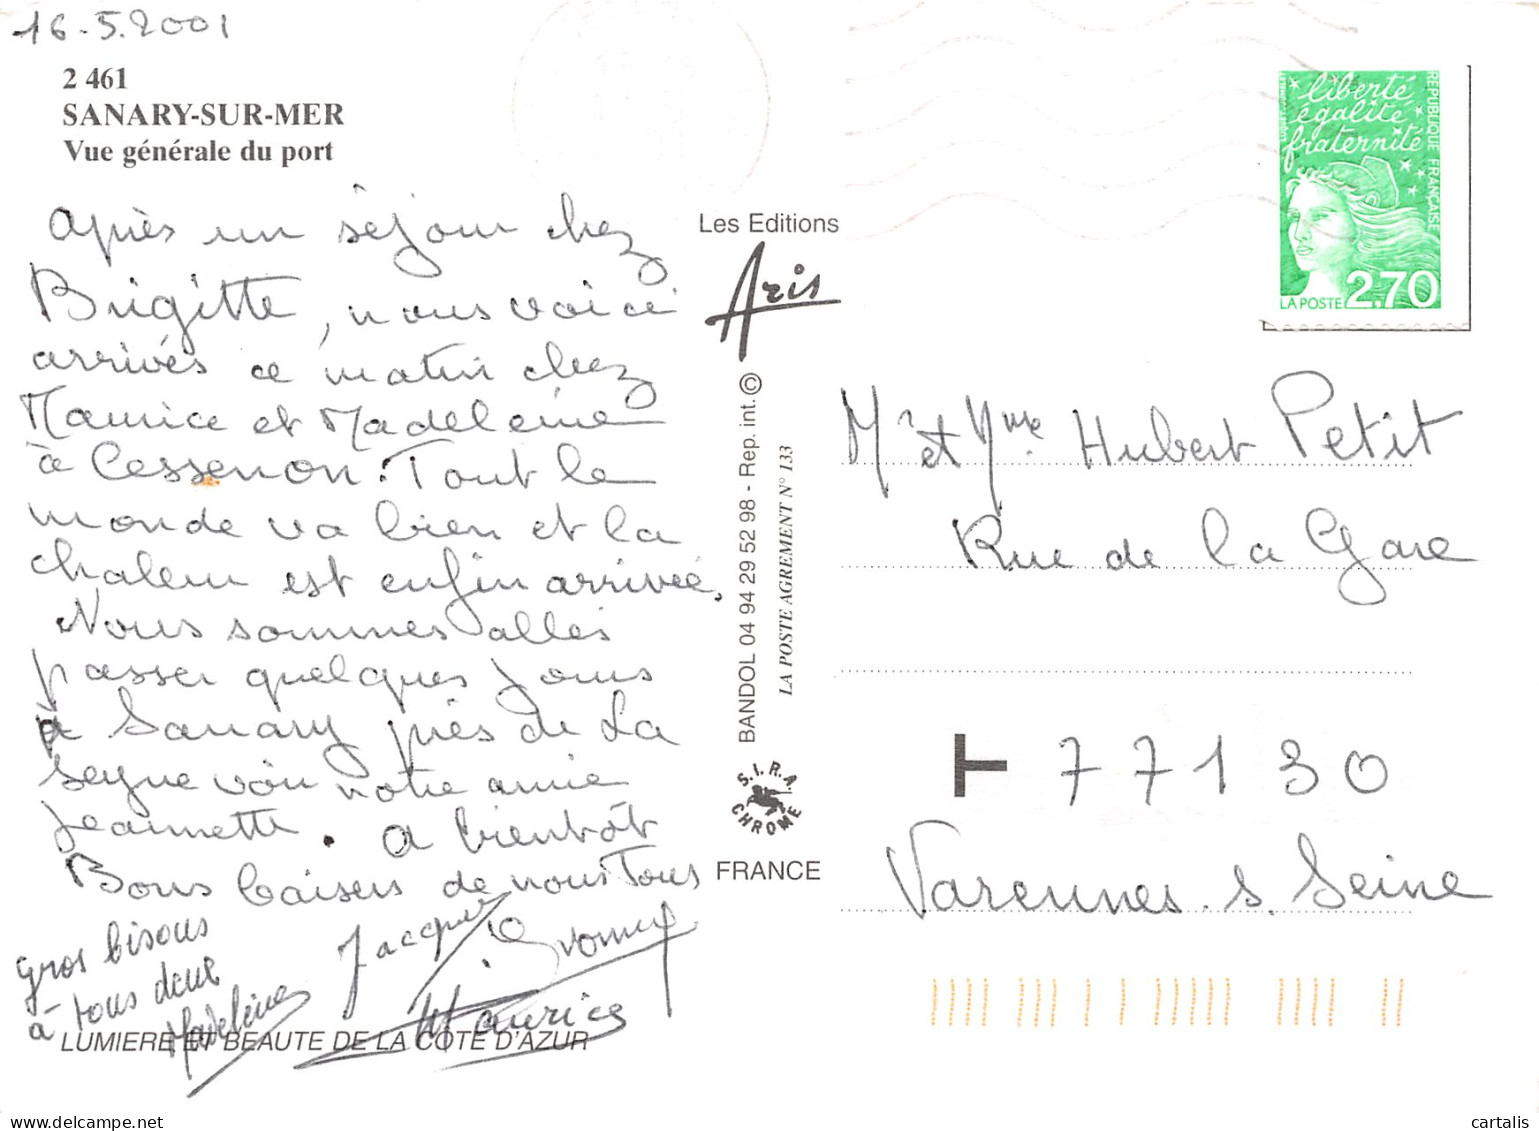 16-5.2001
2 461
SANARY-SUR-MER
Vue générale du port
Après un séjour chez
Brigitte, nous voici
arrivés ce matin chez
Maurice et Madeleine
à Cessenon. Tout le
monde va bien et la
chaleur est enfin arrivée.
Nous sommes allés
passer quelques jours
à Sanary près de La
Seyne voir notre amie
Jeannette. A bientôt
Bons baisers de nous Tous
Gros bisous
à tous deux
Madeleine
Jacques
Yvonne
Maurice
LUMIERE ET BEAUTE DE LA COTE D'AZUR
Les Editions
Aris
BANDOL 04 94 29 52 98 - Rep. int. ©
LA POSTE AGREMENT N° 133
S.I.R.A.
CHROME
FRANCE
liberté
égalité
fraternité
REPUBLIQUE FRANÇAISE
LA POSTE 2,70
Mr et Mme Hubert Petit
Rue de la Gare
77130
Varennes s. Seine
cartalis
delcampe.net